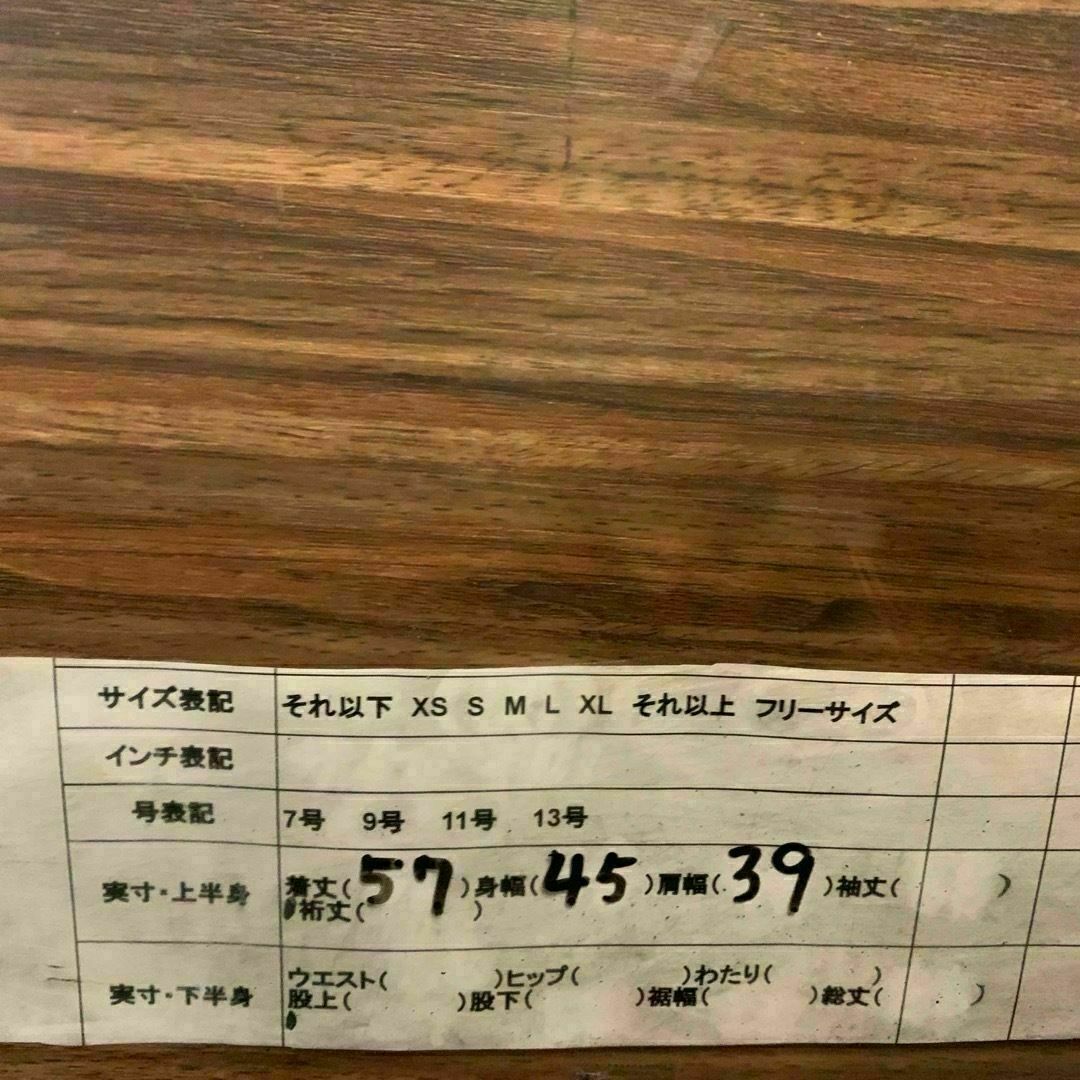 サイズ表記 それ以下 XS S M L XL それ以上 フリーサイズ
インチ表記
号表記 7号 9号 11号 13号
実寸・上半身 着丈(57)身幅(45)肩幅(39)袖丈( )
裄丈( )
実寸・下半身 ウエスト( )ヒップ( )わたり( )
股上( )股下( )裾幅( )総丈( )